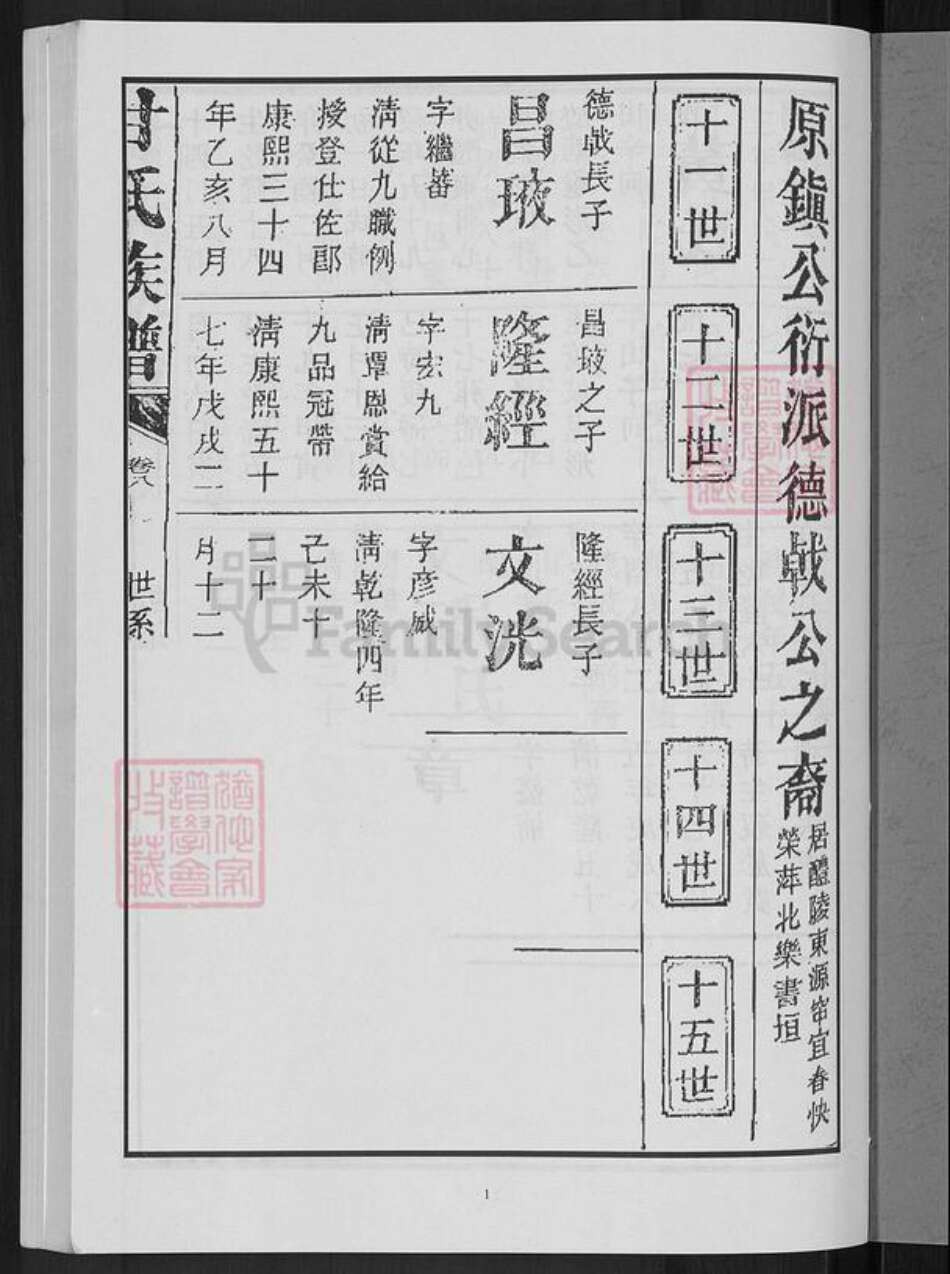 原鎮公衍派德戟公之裔
居醴陵東源
宜春快
榮萍北樂書垣
十一世
十二世
十三世
十四世
十五世
德戟長子
昌玻
字繼蕃
清從九職例
授登仕佐郎
康熙三十四
年乙亥八月
昌玻之子
隆經
字宏九
清覃恩賞給
九品冠帶
清康熙五十
七年戊戌二
隆經長子
文洸
字彥威
清乾隆四年
己未十
二十
月十二
甘氏族譜
卷八
世系
FamilySearch
譜學會
收藏
1